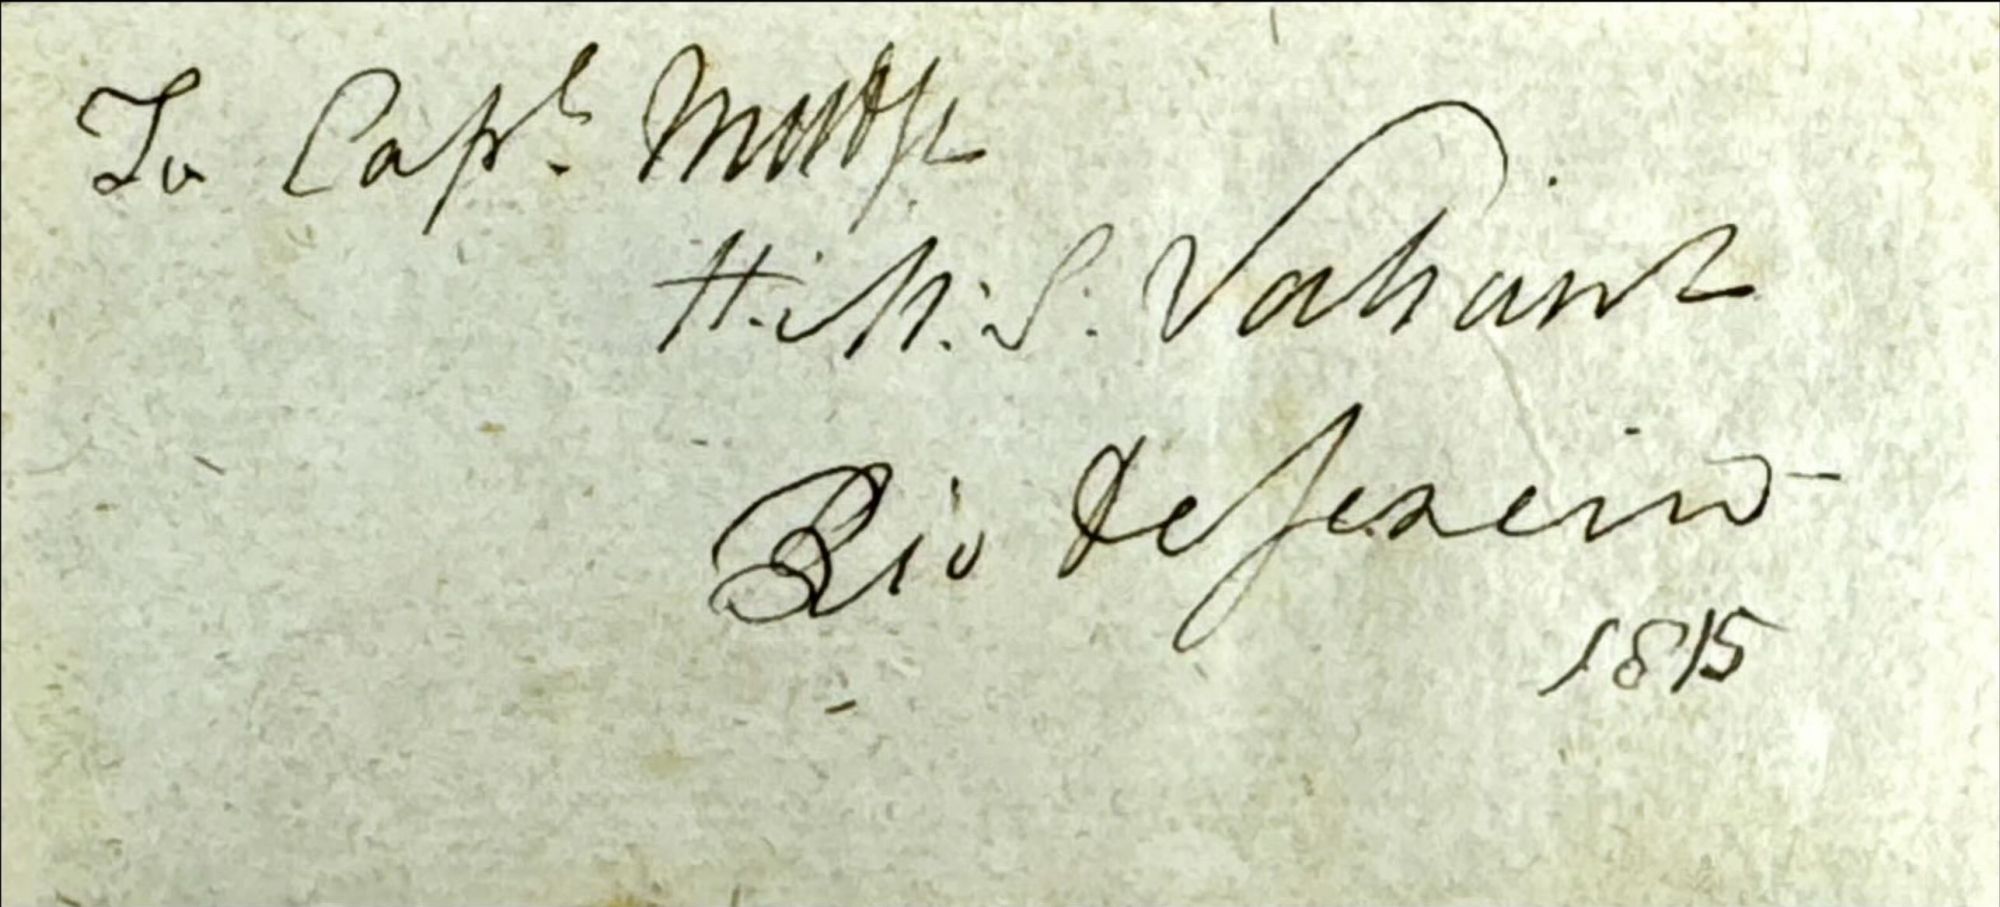 To Capt.
H. M. S. Valiant
Rio de Janeiro
1815